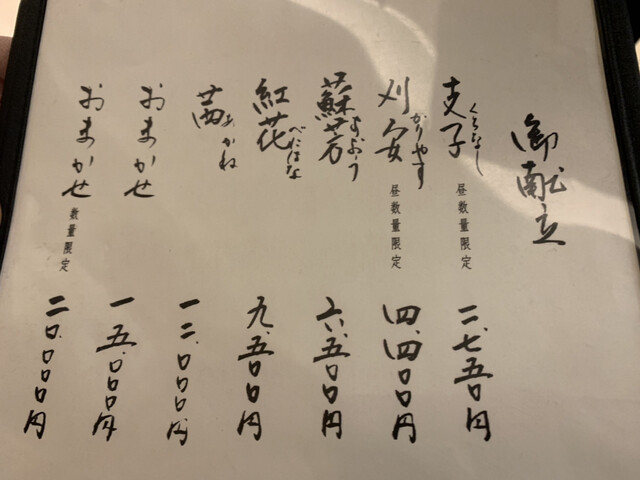 御献立
支子 くちなし 昼数量限定 二、七五〇円
刈安 かりやす 昼数量限定 四、四〇〇円
蘇芳 すおう 六、五〇〇円
紅花 べにはな 九、五〇〇円
茜 あかね 一二、〇〇〇円
おまかせ 一五、〇〇〇円
おまかせ 数量限定 二〇、〇〇〇円